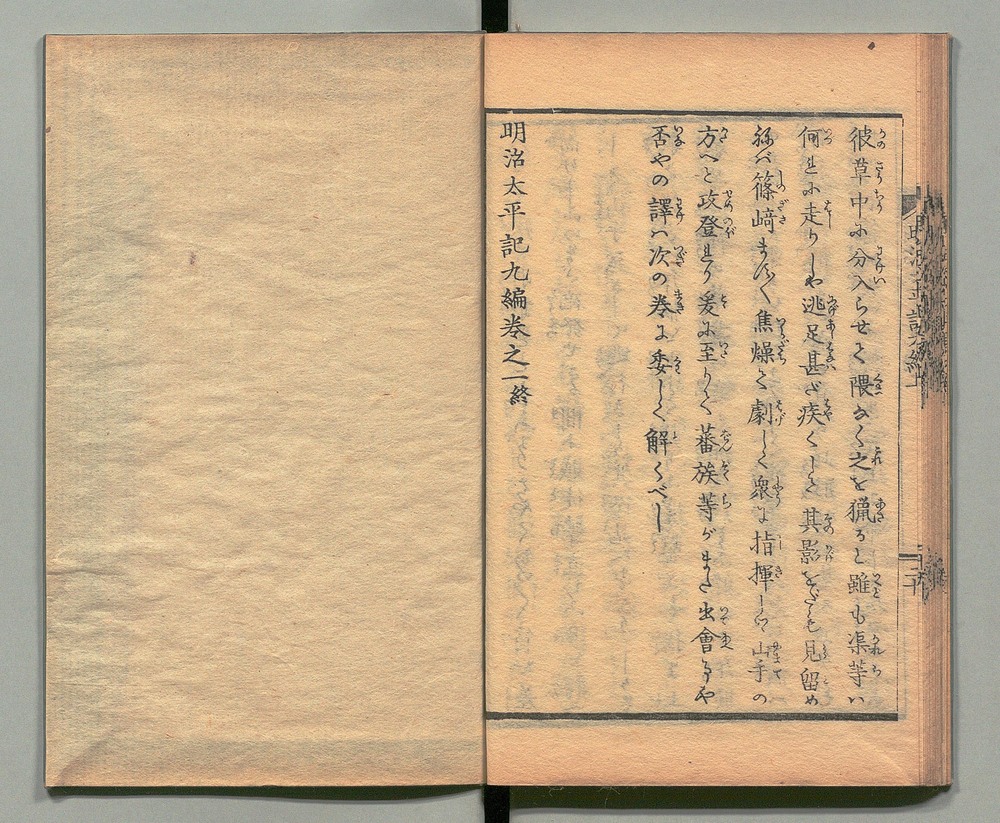 彼草中に分入らせて隈なく之を猟ると雖も渠等ハ
何れに走りしや逃足甚ざ疾くして其影をだも見留め
ねバ篠﨑ます〱焦燥て劇しく衆に指揮しつゝ山手の
方へと攻登れり爰に至りて蕃族等がまた出會すや
否やの譯ハ次の巻に委しく解くべし
明治太平記九編巻之一終